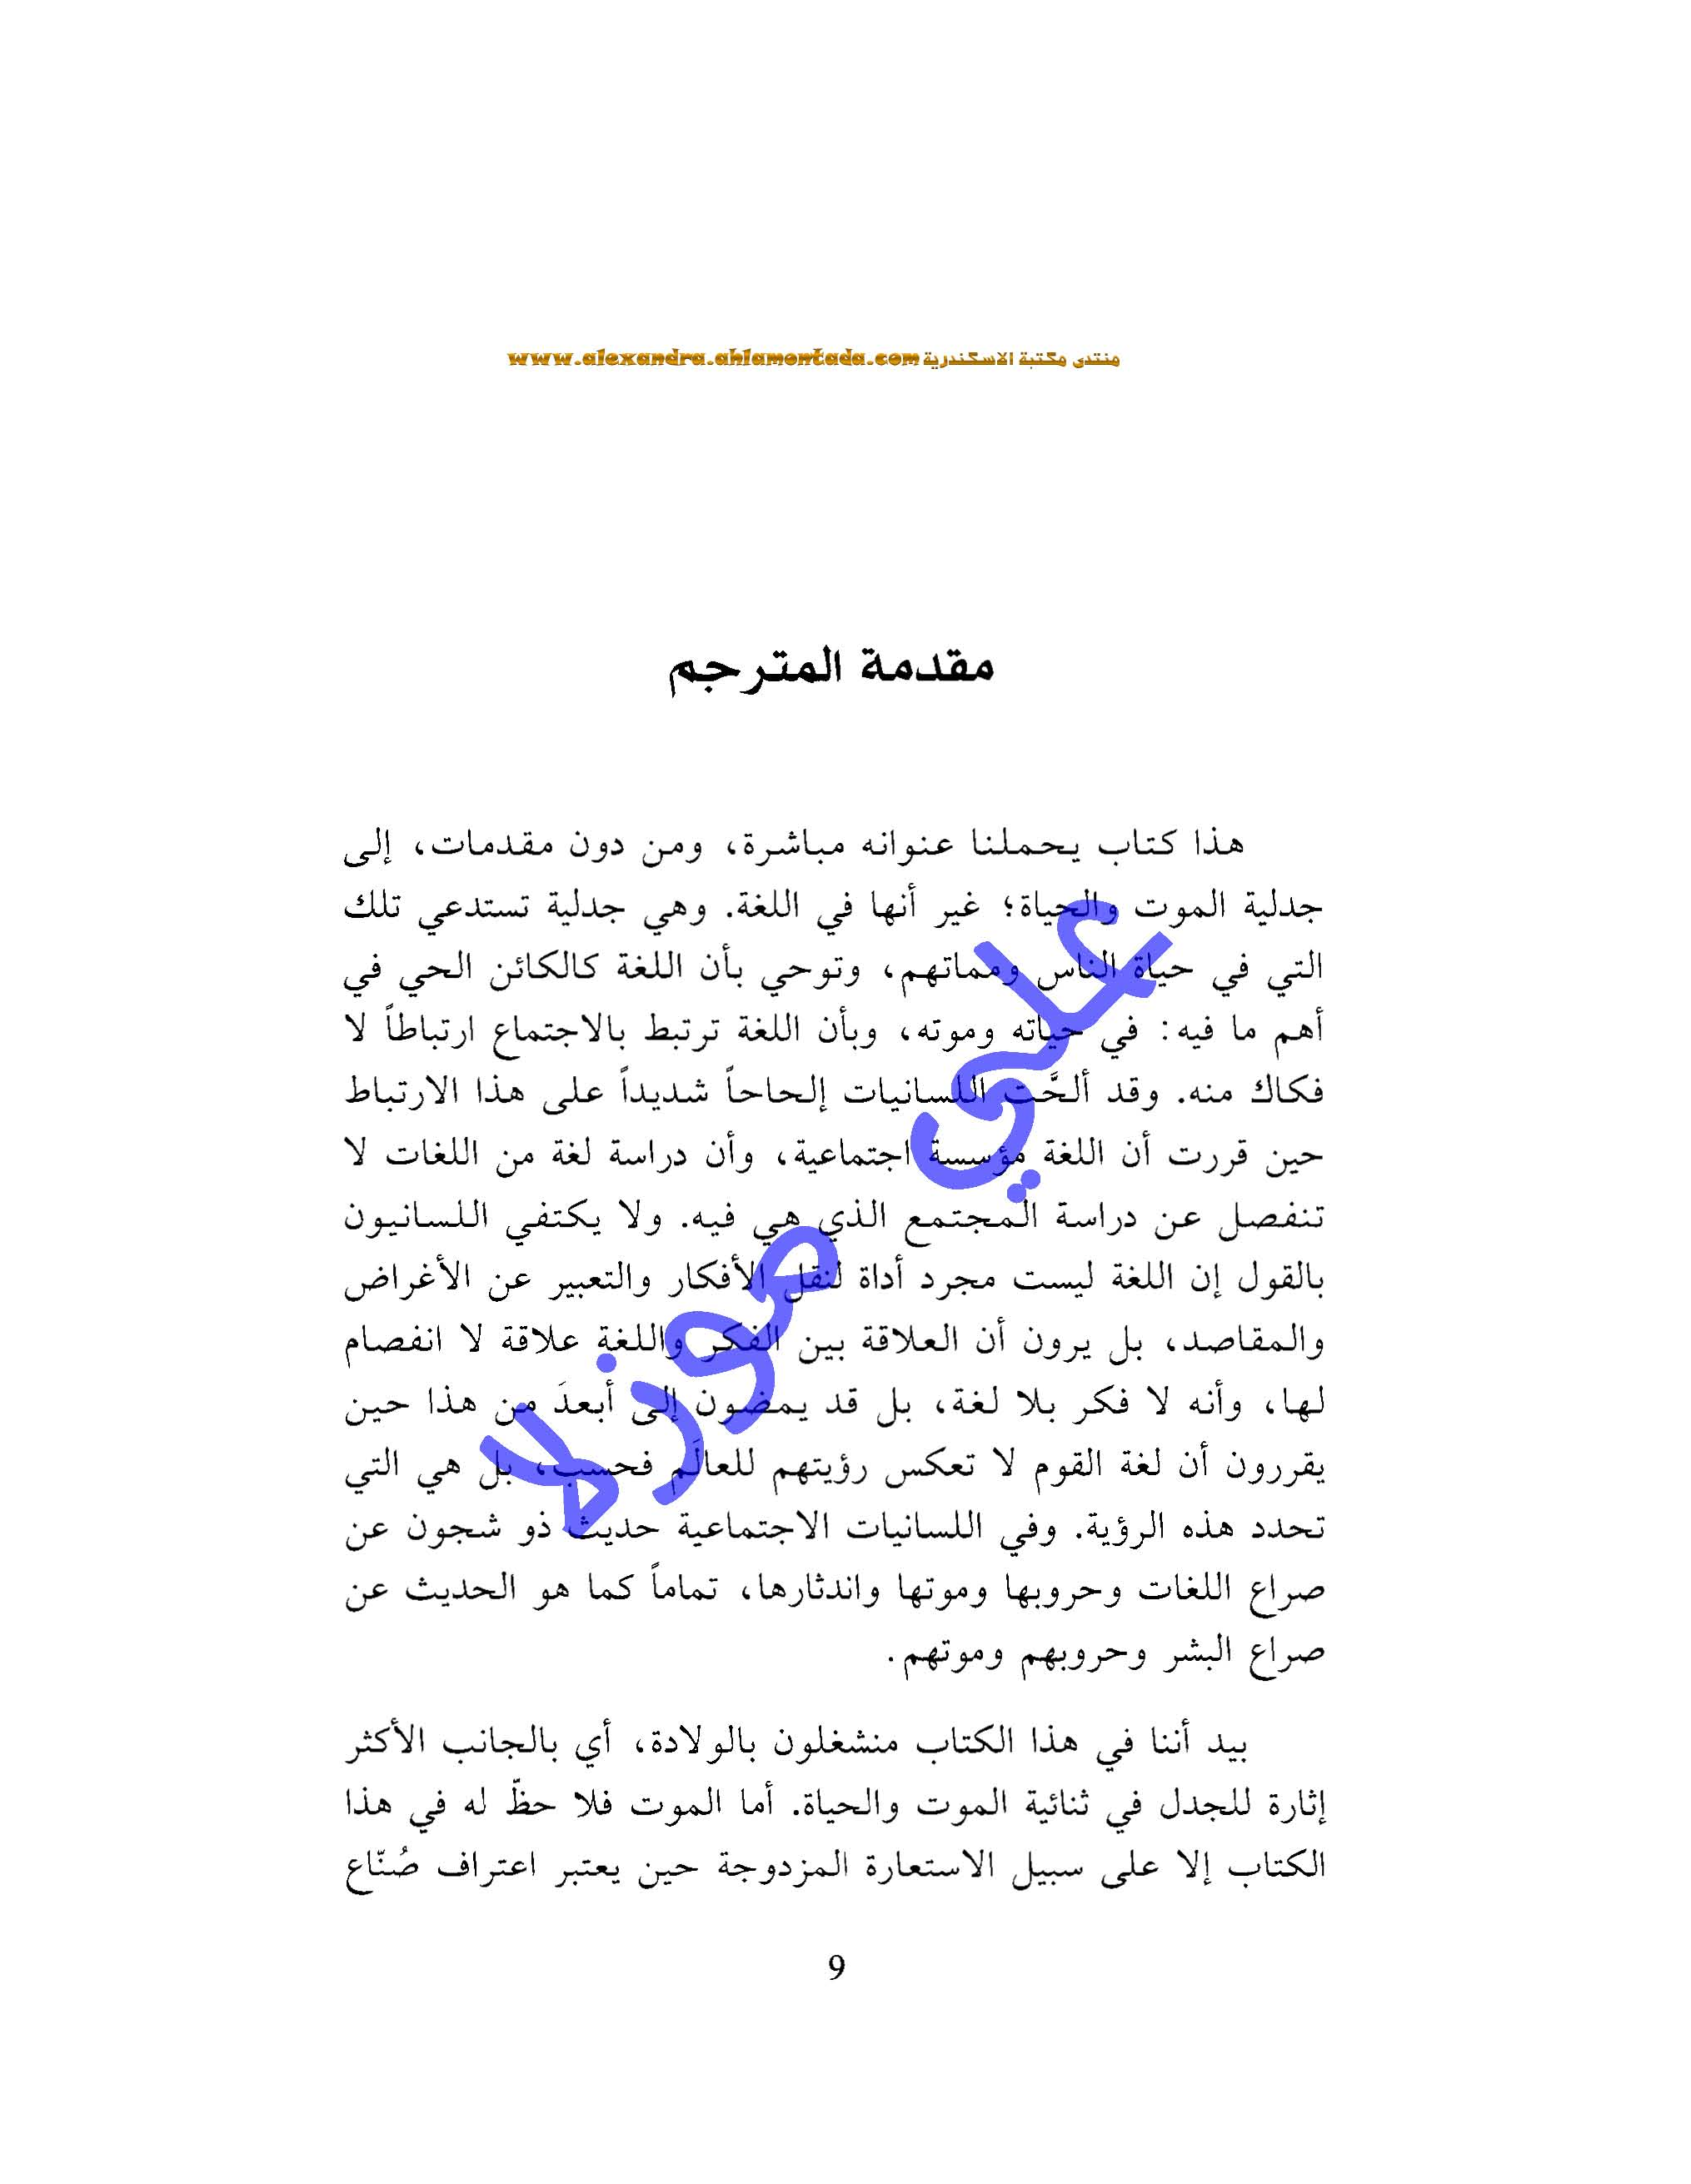 منتدى مكتبة الاسكندرية www.alexandra.ahlamontada.com
مقدمة المترجم
هذا كتاب يحملنا عنوانه مباشرة، ومن دون مقدمات، إلى
جدلية الموت والحياة؛ غير أنها في اللغة. وهي جدلية تستدعي تلك
التي في حياة الناس ومماتهم، وتوحي بأن اللغة كالكائن الحي في
أهم ما فيه: في حياته وموته، وبأن اللغة ترتبط بالاجتماع ارتباطاً لا
فكاك منه. وقد ألحَّت اللسانيات إلحاحاً شديداً على هذا الارتباط
حين قررت أن اللغة مؤسسة اجتماعية، وأن دراسة لغة من اللغات لا
تنفصل عن دراسة المجتمع الذي هي فيه. ولا يكتفي اللسانيون
بالقول إن اللغة ليست مجرد أداة لنقل الأفكار والتعبير عن الأغراض
والمقاصد، بل يرون أن العلاقة بين الفكر واللغة علاقة لا انفصام
لها، وأنه لا فكر بلا لغة، بل قد يمضون إلى أبعدَ من هذا حين
يقررون أن لغة القوم لا تعكس رؤيتهم للعالَم فحسب، بل هي التي
تحدد هذه الرؤية. وفي اللسانيات الاجتماعية حديث ذو شجون عن
صراع اللغات وحروبها وموتها واندثارها، تماماً كما هو الحديث عن
صراع البشر وحروبهم وموتهم.
بيد أننا في هذا الكتاب منشغلون بالولادة، أي بالجانب الأكثر
إثارة للجدل في ثنائية الموت والحياة. أما الموت فلا حظّ له في هذا
الكتاب إلا على سبيل الاستعارة المزدوجة حين يعتبر اعتراف صُنّاع
9
علي مولا